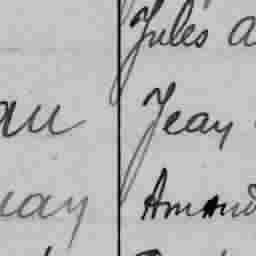 Jules a
au Jeay
uay Amand